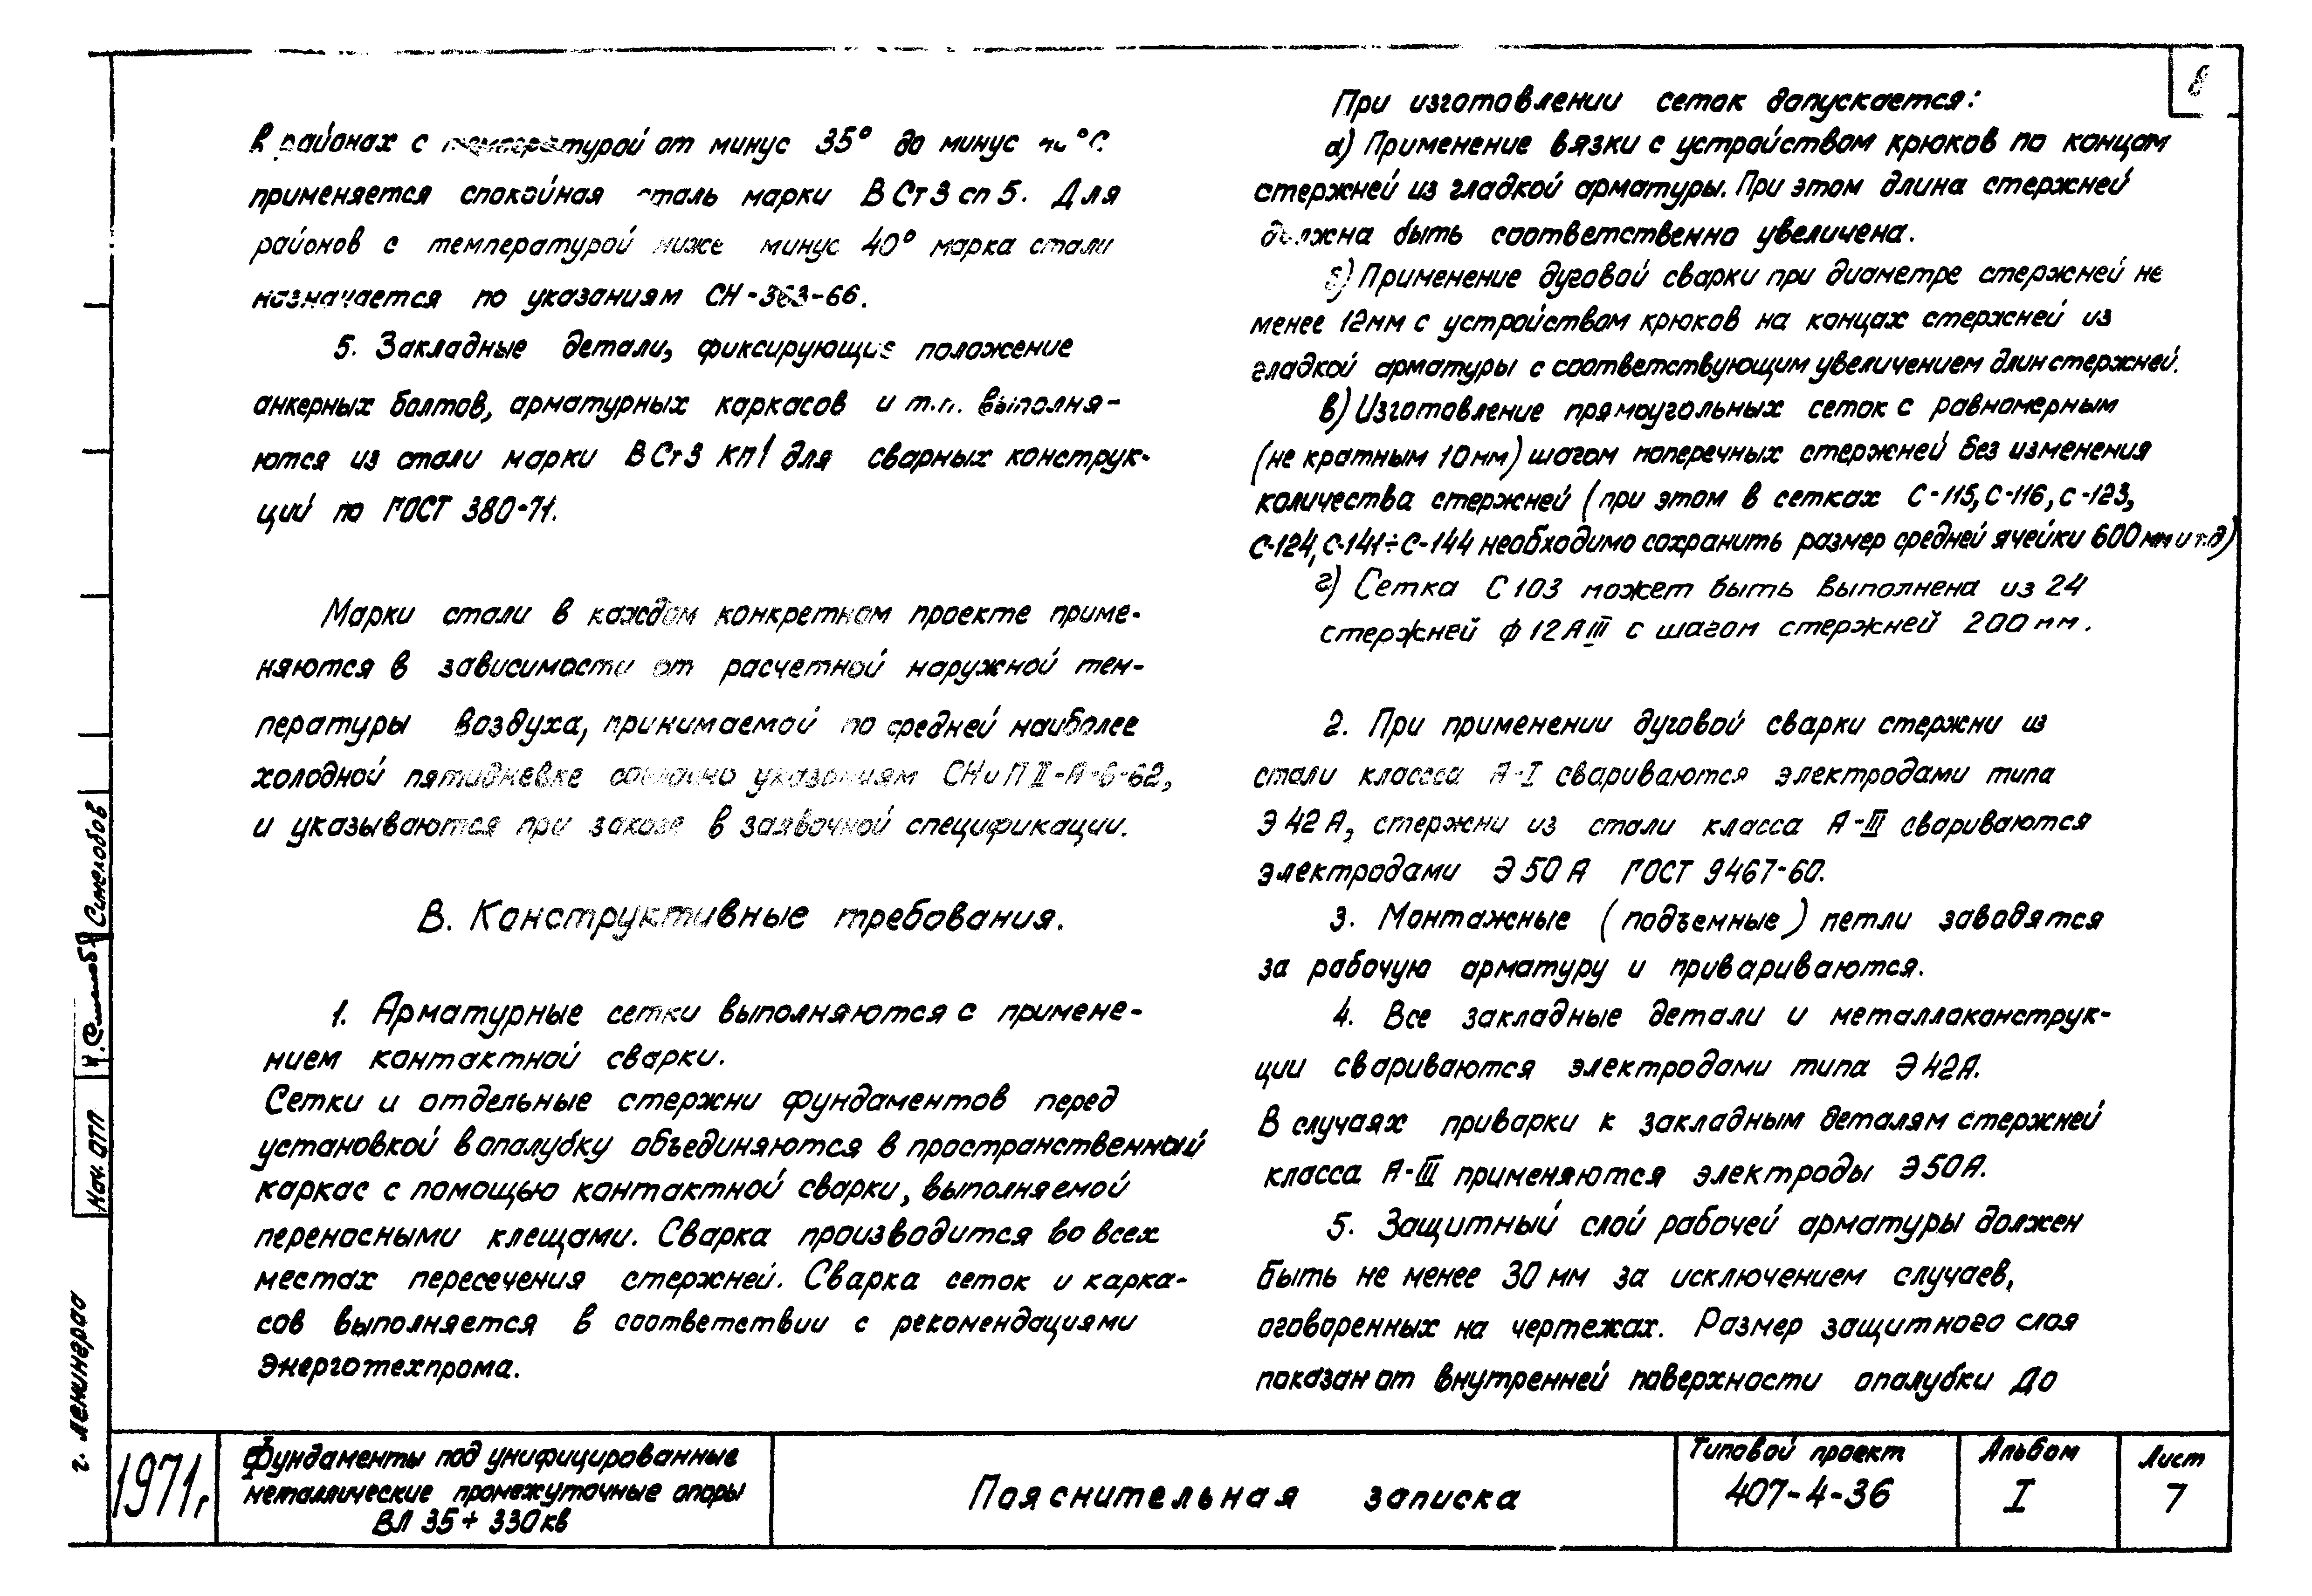 8
в районах с температурой от минус 35° до минус 40°С
применяется спокойная сталь марки ВСт3сп5. Для
районов с температурой ниже минус 40° марка стали
назначается по указаниям СН-363-66.
5. Закладные детали, фиксирующие положение
анкерных болтов, арматурных каркасов и т.п. выполня-
ются из стали марки ВСт3 кп1 для сварных конструк-
ций по ГОСТ 380-71.
Марки стали в каждом конкретном проекте приме-
няются в зависимости от расчетной наружной тем-
пературы воздуха, принимаемой по средней наиболее
холодной пятидневке согласно указаниям СНиП II-А-6-62,
и указываются при заказе в заявочной спецификации.
В. Конструктивные требования.
1. Арматурные сетки выполняются с примене-
нием контактной сварки.
Сетки и отдельные стержни фундаментов перед
установкой в опалубку объединяются в пространственный
каркас с помощью контактной сварки, выполняемой
переносными клещами. Сварка производится во всех
местах пересечения стержней. Сварка сеток и карка-
сов выполняется в соответствии с рекомендациями
Энерготехпрома.
При изготовлении сеток допускается:
а) Применение вязки с устройством крюков по концам
стержней из гладкой арматуры. При этом длина стержней
должна быть соответственно увеличена.
б) Применение дуговой сварки при диаметре стержней не
менее 12мм с устройством крюков на концах стержней из
гладкой арматуры с соответствующим увеличением длин стержней.
в) Изготовление прямоугольных сеток с равномерным
(не кратным 10мм) шагом поперечных стержней без изменения
количества стержней (при этом в сетках С-115, С-116, С-123,
С-124, С-141÷С-144 необходимо сохранить размер средней ячейки 600мм и т.д)
г) Сетка С103 может быть выполнена из 24
стержней ф12АIII с шагом стержней 200мм.
2. При применении дуговой сварки стержни из
стали классса А-I свариваются электродами типа
Э42А, стержни из стали класса А-III свариваются
электродами Э50А ГОСТ 9467-60.
3. Монтажные (подъемные) петли заводятся
за рабочую арматуру и привариваются.
4. Все закладные детали и металлоконструк-
ции свариваются электродами типа Э42А.
В случаях приварки к закладным деталям стержней
класса А-III применяются электроды Э50А.
5. Защитный слой рабочей арматуры должен
быть не менее 30мм за исключением случаев,
оговоренных на чертежах. Размер защитного слоя
показан от внутренней поверхности опалубки до
Нач. ОТП
г. Ленинград
1971г
Фундаменты под унифицированные
металлические промежуточные опоры
ВЛ 35÷330кв
Пояснительная записка
Типовой проект
407-4-36
Альбом
I
Лист
7